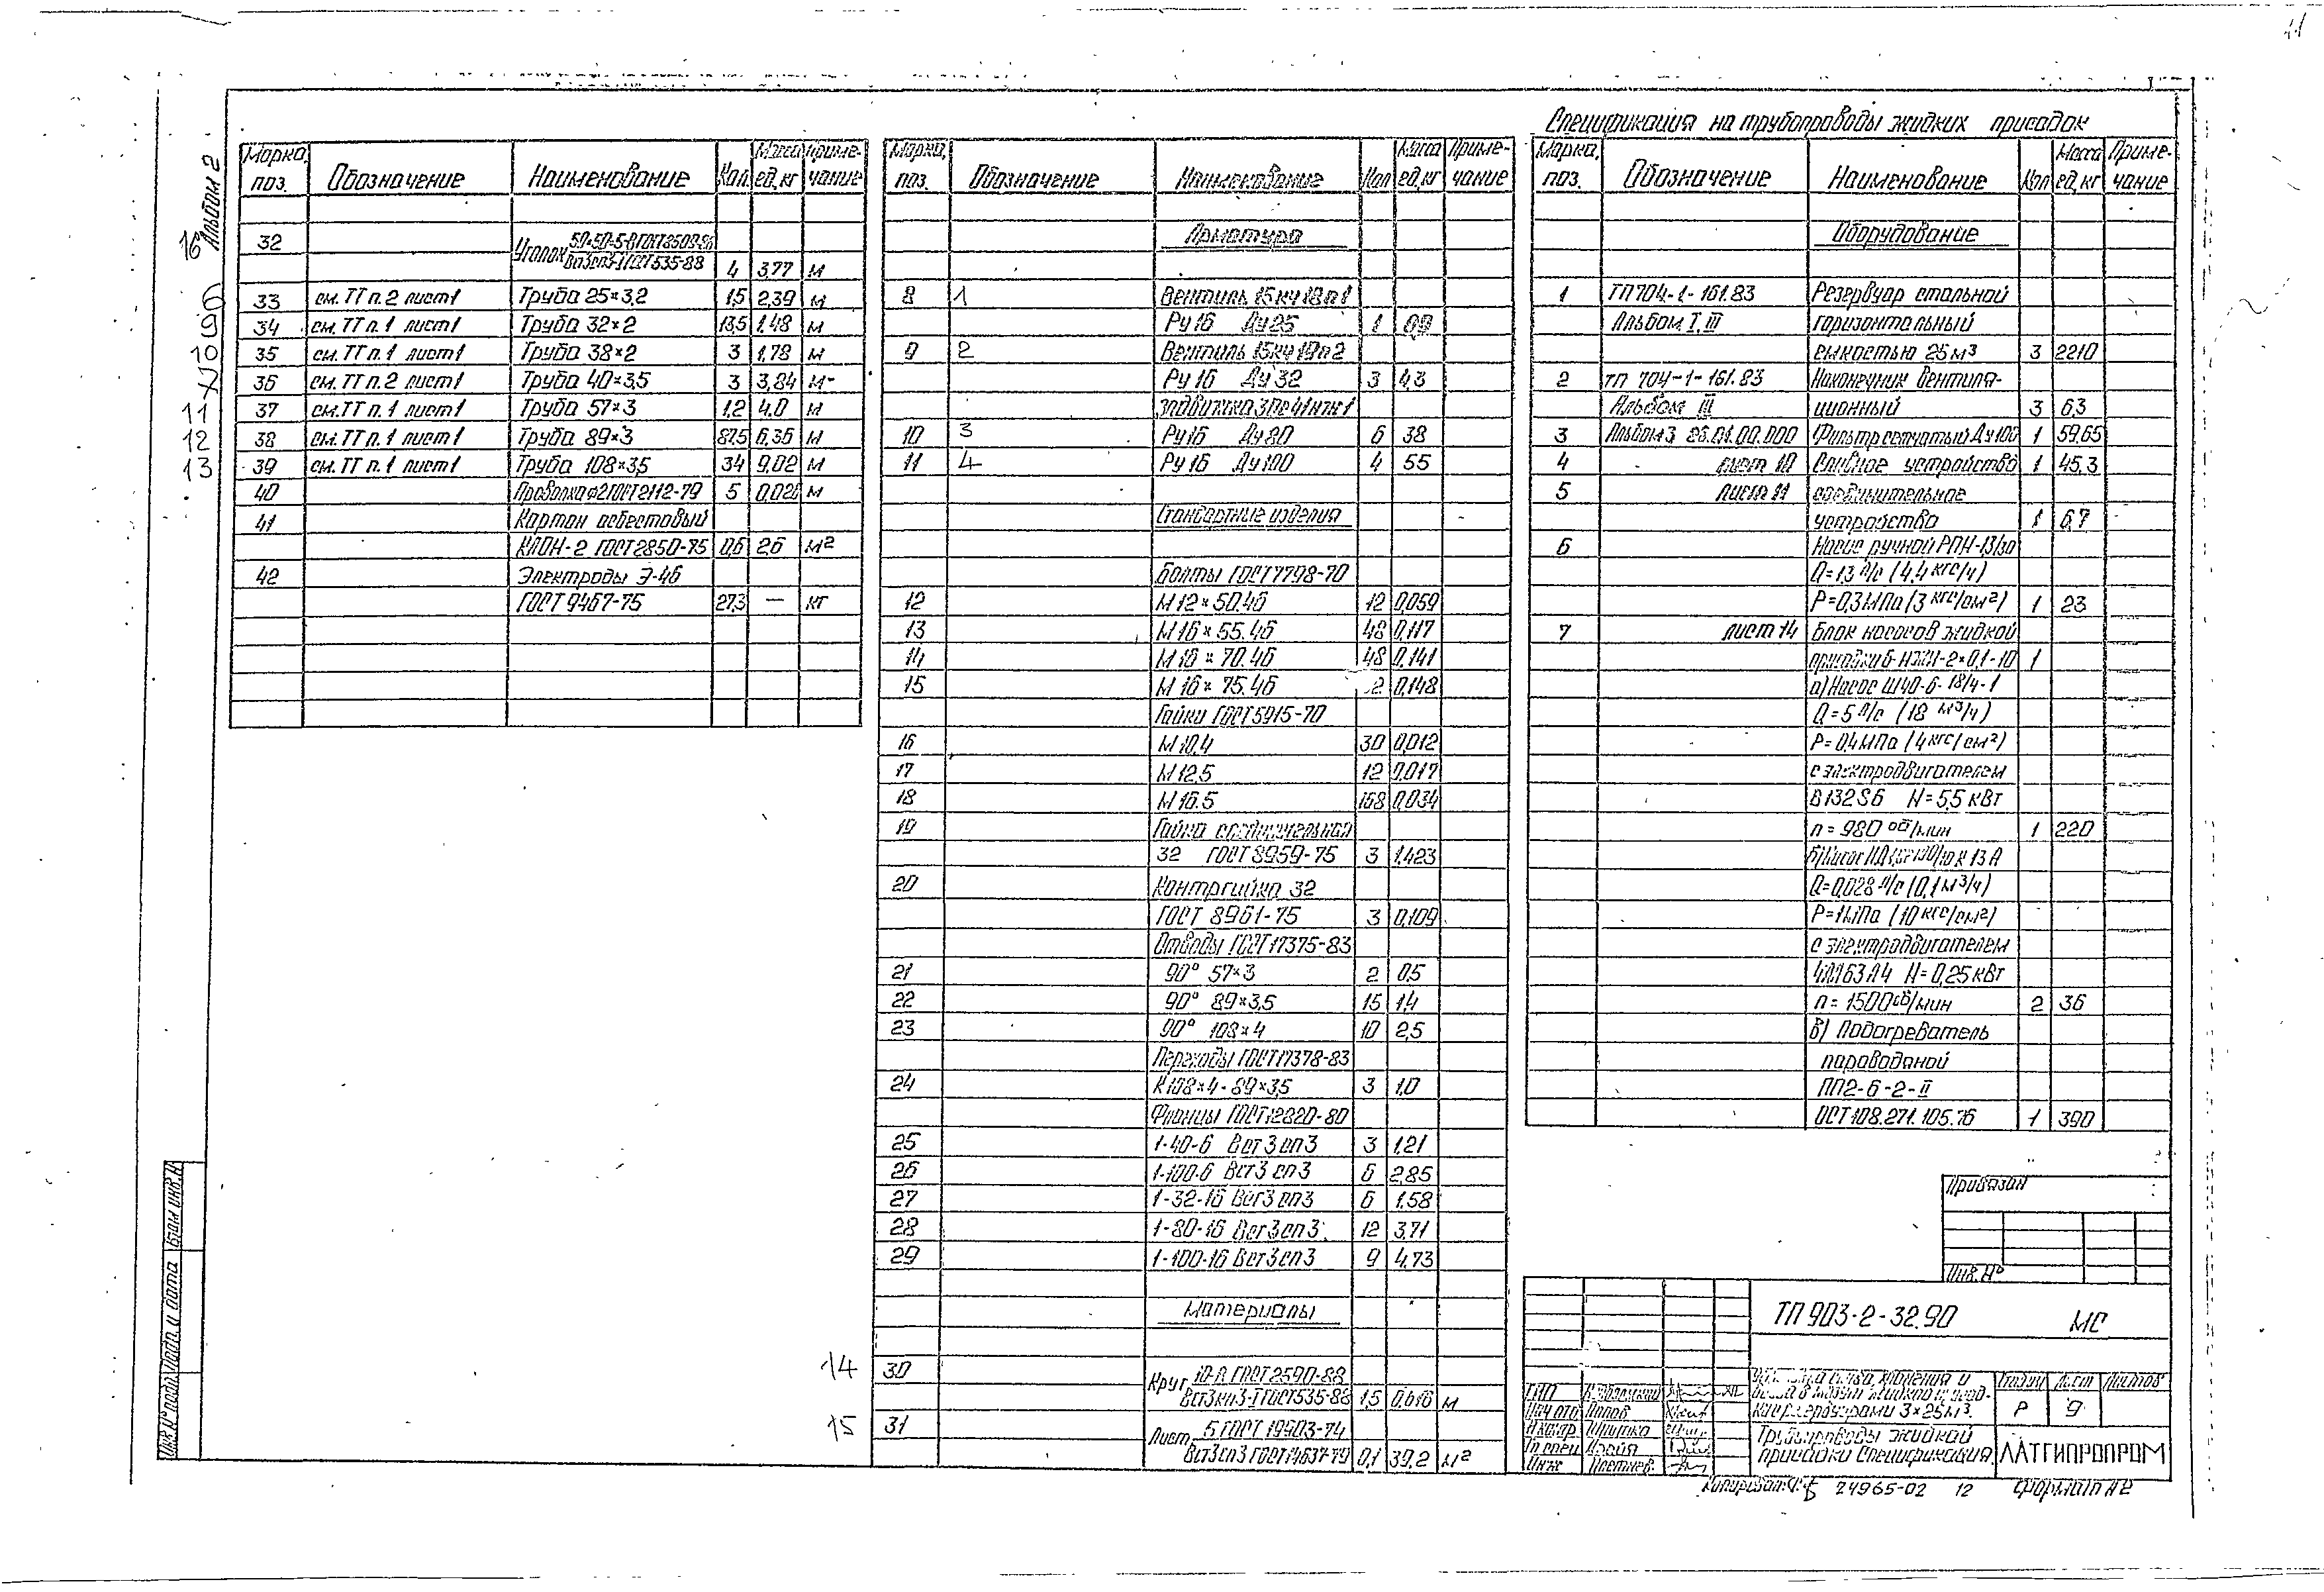 11
Альбом 2
Спецификация на трубопроводы жидких присадок
Марка, поз. Обозначение Наименование Кол Масса ед, кг Приме-чание
32 Уголок 50×50-5-В ГОСТ 8509-86
Вст3сп3-I ГОСТ 535-88 4 3,77 м
33 см. ТТ п. 2 лист 1 Труба 25×3,2 1,5 2,39 м
34 см. ТТ п. 1 лист 1 Труба 32×2 13,5 1,48 м
35 см. ТТ п. 1 лист 1 Труба 38×2 3 1,78 м
36 см. ТТ п. 2 лист 1 Труба 40×3,5 3 3,84 м
37 см. ТТ п. 1 лист 1 Труба 57×3 1,2 4,0 м
38 см. ТТ п. 1 лист 1 Труба 89×3 87,5 6,36 м
39 см. ТТ п. 1 лист 1 Труба 108×3,5 34 9,02 м
40 Проволка ф2 ГОСТ 2112-79 5 м
41 Картон асбестовый
КАОН-2 ГОСТ 2850-75 0,6 2,6 м²
42 Электроды Э-46
ГОСТ 9467-75 27,3 — кг
16
6
9
10
11
12
13
Марка, поз. Обозначение Наименование Кол Масса ед, кг Приме-чание
Арматура
8 1 Вентиль 15кч18п1
Ру16 Ду25 1 0,9
9 2 Вентиль 15кч19п2
Ру16 Ду32 3 4,3
Задвижка
10 3 Ру16 Ду80 6 38
11 4 Ру16 Ду100 4 55
Стандартные изделия
Болты ГОСТ 7798-70
12 М12×50.46 12 0,059
13 М16×55.46 48 0,117
14 М16×70.46 48 0,141
15 М16×75.46 0,148
Гайки ГОСТ 5915-70
16 М10.4 30 0,012
17 М12.5 12 0,017
18 М16.5 158 0,034
19 Гайка соединительная
32 ГОСТ 8959-75 3 1,423
20 Контргайка 32
ГОСТ 8961-75 3 0,109
Отводы ГОСТ 17375-83
21 90° 57×3 2 0,5
22 90° 89×3,5 15 1,4
23 90° 108×4 10 2,5
Переходы ГОСТ 17378-83
24 К108×4-89×3,5 3 1,0
Фланцы ГОСТ 12820-80
25 1-40-6 Вст3сп3 3 1,21
26 1-100-6 Вст3сп3 6 2,85
27 1-32-16 Вст3сп3 6 1,58
28 1-80-16 Вст3сп3 12 3,71
29 1-100-16 Вст3сп3 9 4,73
Материалы
14 30 Круг 10-В ГОСТ 2590-88
Вст3кп3-I ГОСТ 535-88 1,5 0,616 м
15 31 Лист 5 ГОСТ 19903-74
Вст3сп3 ГОСТ 14637-79 0,1 39,2 м²
Марка, поз. Обозначение Наименование Кол Масса ед, кг Приме-чание
Оборудование
1 ТП 704-1-161.83 Резервуар стальной
Альбом I, III горизонтальный
емкостью 25 м³ 3 2210
2 ТП 704-1-161.83 Наконечник вентиля-
Альбом III ционный 3 6,3
3 Альбом 3 86.01.00.000 Фильтр сетчатый Ду100 1 59,65
4 лист 10 Сливное устройство 1 45,3
5 лист 11 Соединительное
устройство 1 6,7
6 Насос ручной РПН-13/30
Q=1,3 л/с (4,4 кгс/ч)
Р=0,3 МПа (3 кгс/см²) 1 23
7 лист 14 Блок насосов жидкой
присадки 1
а) Насос Ш40-6-18/4-1
Q=5 л/с (18 м³/ч)
Р=0,4 МПа (4 кгс/см²)
с электродвигателем
В132S6 N=5,5 кВт
n=980 об/мин 1 220
б) Насос
Q=0,028 л/с (0,1 м³/ч)
Р=1 МПа (10 кгс/см²)
с электродвигателем
N=0,25 кВт
n=1500 об/мин 2 36
в) Подогреватель
пароводяной
ПП2-6-2-II
ОСТ 108.271.105.76 1 390
Привязан
Инв. №
ТП 903-2-32.90 МС
резервуарами 3×25 м³.
Стадия Лист Листов
Р 9
Трубопроводы жидкой
присадки Спецификация.
ЛАТГИПРОПРОМ
ГИП
Нач отд Попов
Н.контр
Гл спец
Инж
Копировал: 24965-02 12 Формат А2
Инв. № подл. Подп. и дата Взам инв. №